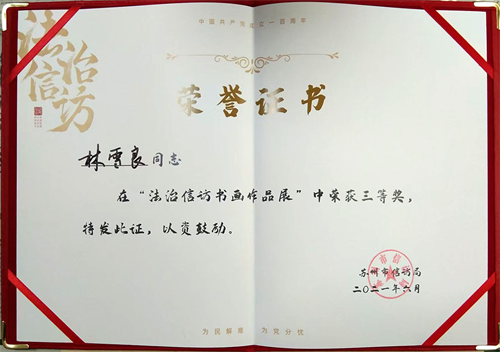 中国共产党成立一百周年
法治
信访
荣誉证书
林雪良同志
在“法治信访书画作品展”中荣获三等奖，
特发此证，以资鼓励。
苏州市信访局
二〇二一年六月
为民解难 为党分忧